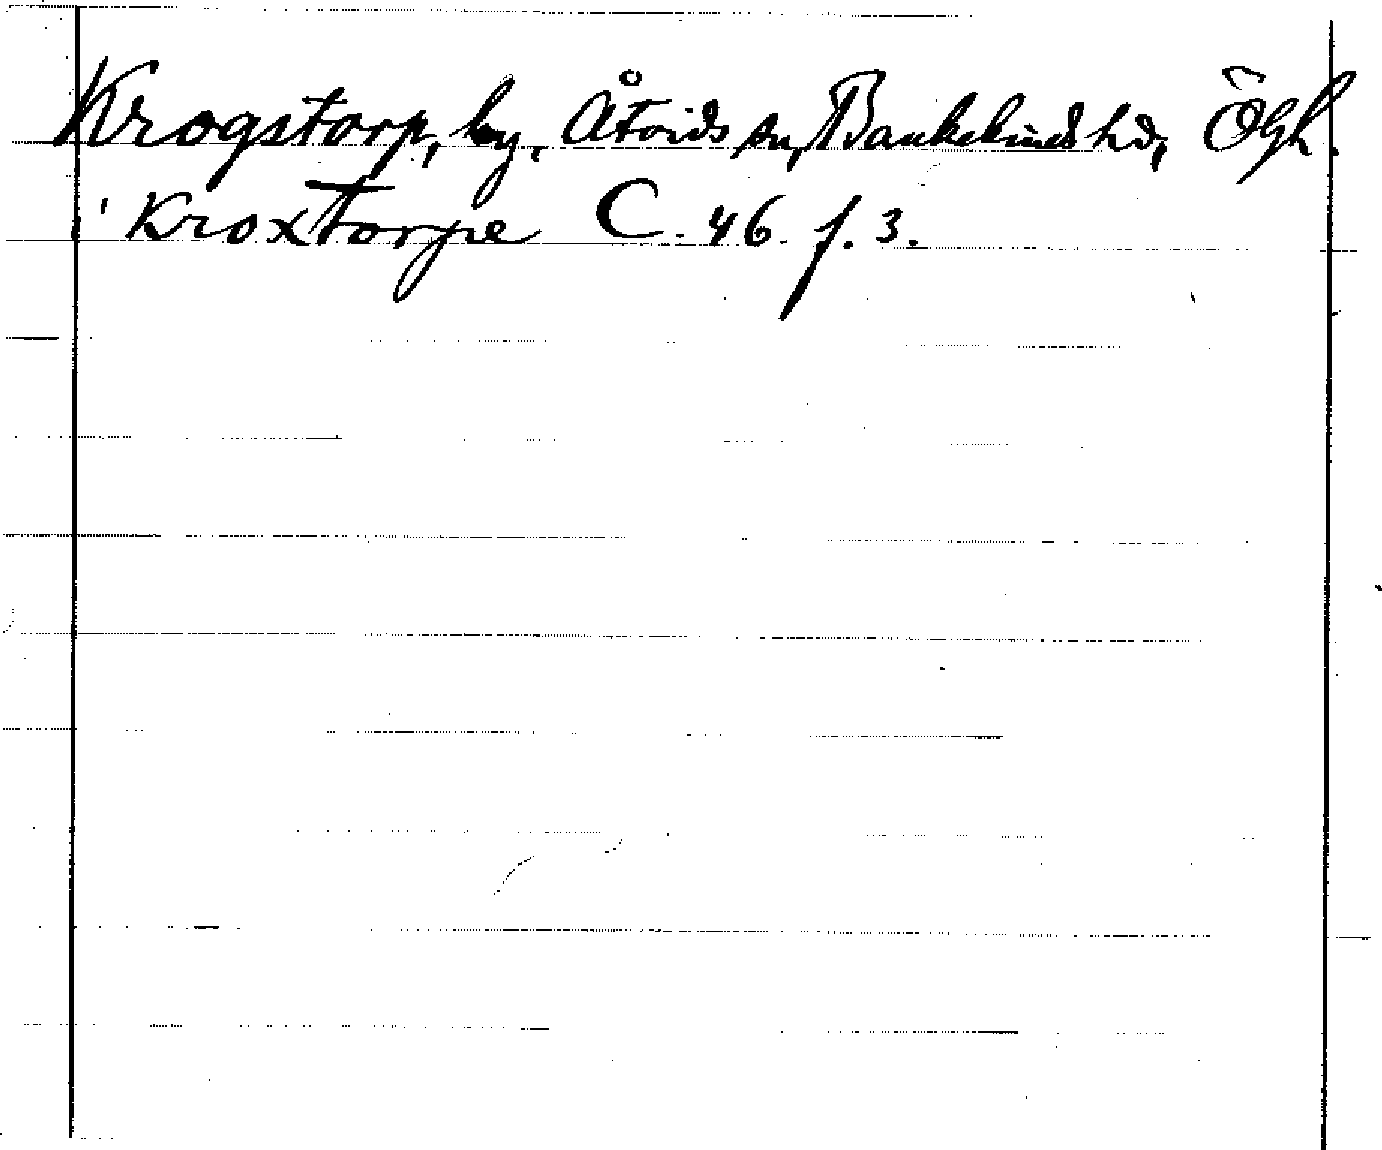 Krogstorp, by, Åtvids sn, Bankekinds hd, Ögl.
i Kroxtorpe C. 46 f. 3.